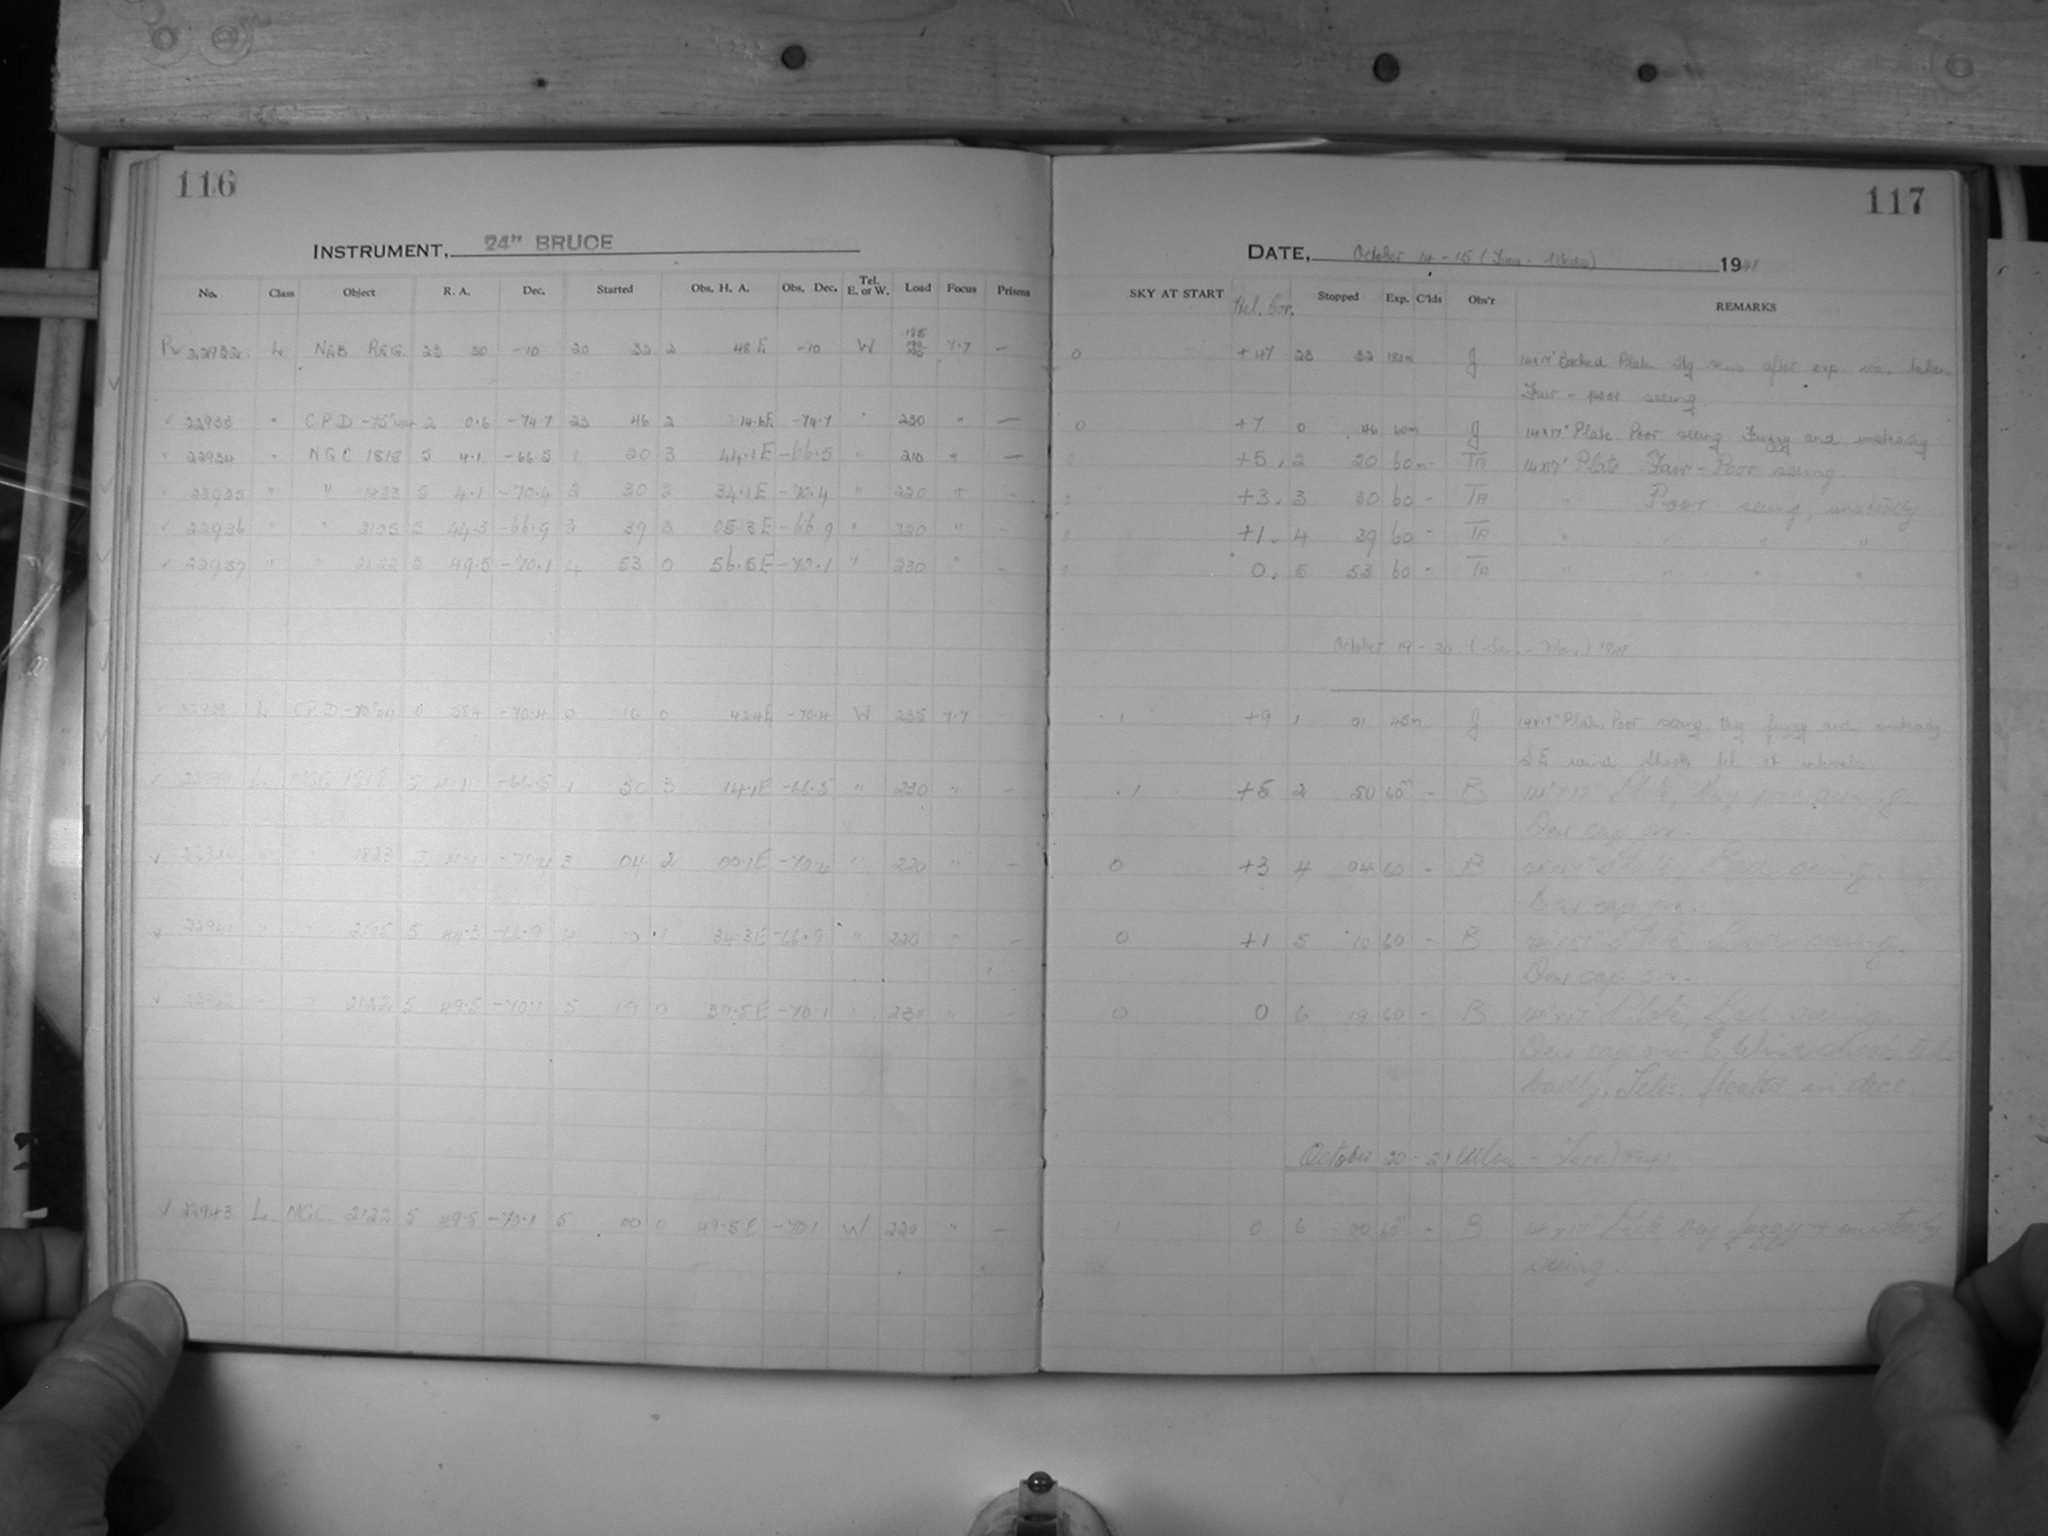 116
INSTRUMENT, 24" BRUCE
No. Class Object R. A. Dec. Started Obs. H. A. Obs. Dec. Tel. E. or W. Load Focus Prisms
22932 L 23 30 -10 20 32 2 48 E -10 W 7.7 —
✓ 22933 " C P D -75° 2 0.6 -74.7 23 46 2 14.6E -74.7 " 230 " —
✓ 22934 " NGC 1818 5 4.1 -66.5 1 20 3 44.1E -66.5 " 210 " —
✓ 22935 " " 1833 5 4.1 -70.4 2 30 2 34.1E -70.4 " 220 " -
✓ 22936 " " 2105 5 44.3 -66.9 3 39 2 05.3E -66.9 " 220 " -
✓ 22937 " " 2122 5 49.5 -70.1 4 53 0 56.5E -70.1 " 230 " -
✓ 22938 L C.P.D -70° 0 -70.4 0 16 0 42.4E -70.4 W 235 7.7
✓ 22939 L NGC 1818 5 4.1 -66.5 1 50 3 14.1E -66.5 " 230 " -
✓ 22940 " " 1833 5 4.1 -70.4 3 04 2 00.1E -70.4 " 220 " -
✓ 22941 " " 2105 5 44.3 -66.9 4 10 1 34.3E -66.9 " 220 " -
✓ 22942 " " 2122 5 49.5 -70.1 5 19 0 30.5E -70.1 " 230 " "
✓ 22943 L NGC. 2122 5 49.5 -70.1 5 00 0 49.5E -70.1 W 220 " -
117
DATE, October 14 - 15 (Tues. - Weds) 1941
SKY AT START Stopped Exp. C'lds Obs'r REMARKS
0 +47 23 32 180m J 14x17" Backed Plate. after exp. was taken
Fair - poor seeing.
0 +7 0 46 60m J 14x17" Plate. Poor seeing. Fuzzy and unsteady
0 +5. 2 20 60m - TA 14x17" Plate Fair - Poor seeing.
0 +3. 3 30 60 - TA " Poor seeing, unsteady
0 +1. 4 39 60 - TA " " " "
0 0. 5 53 60 - TA " " " "
October 19 - 20 (Sun. - Mon.) 1941
.1 +9 1 01 45m J 14x17" Plate. Poor seeing. fuzzy and unsteady
S E wind shook tel at intervals.
.1 +5 2 50 60m - B 14"x17" Plate, poor seeing.
Dew cap on.
0 +3 4 04 60 - B 14"x17" Plate, Bad seeing.
Dew cap on.
0 +1 5 10 60 - B 14"x17" Plate, Bad seeing.
Dew cap on.
0 0 6 19 60 - B 14"x17" Plate, Bad seeing.
Dew cap on. E. Wind shook tele
badly. Teles. floated in decl.
October 20 - 21 (Mon - Tues.) 1941
1 0 6 00 60m - B 14"x17" Plate, very fuzzy & unsteady
seeing.